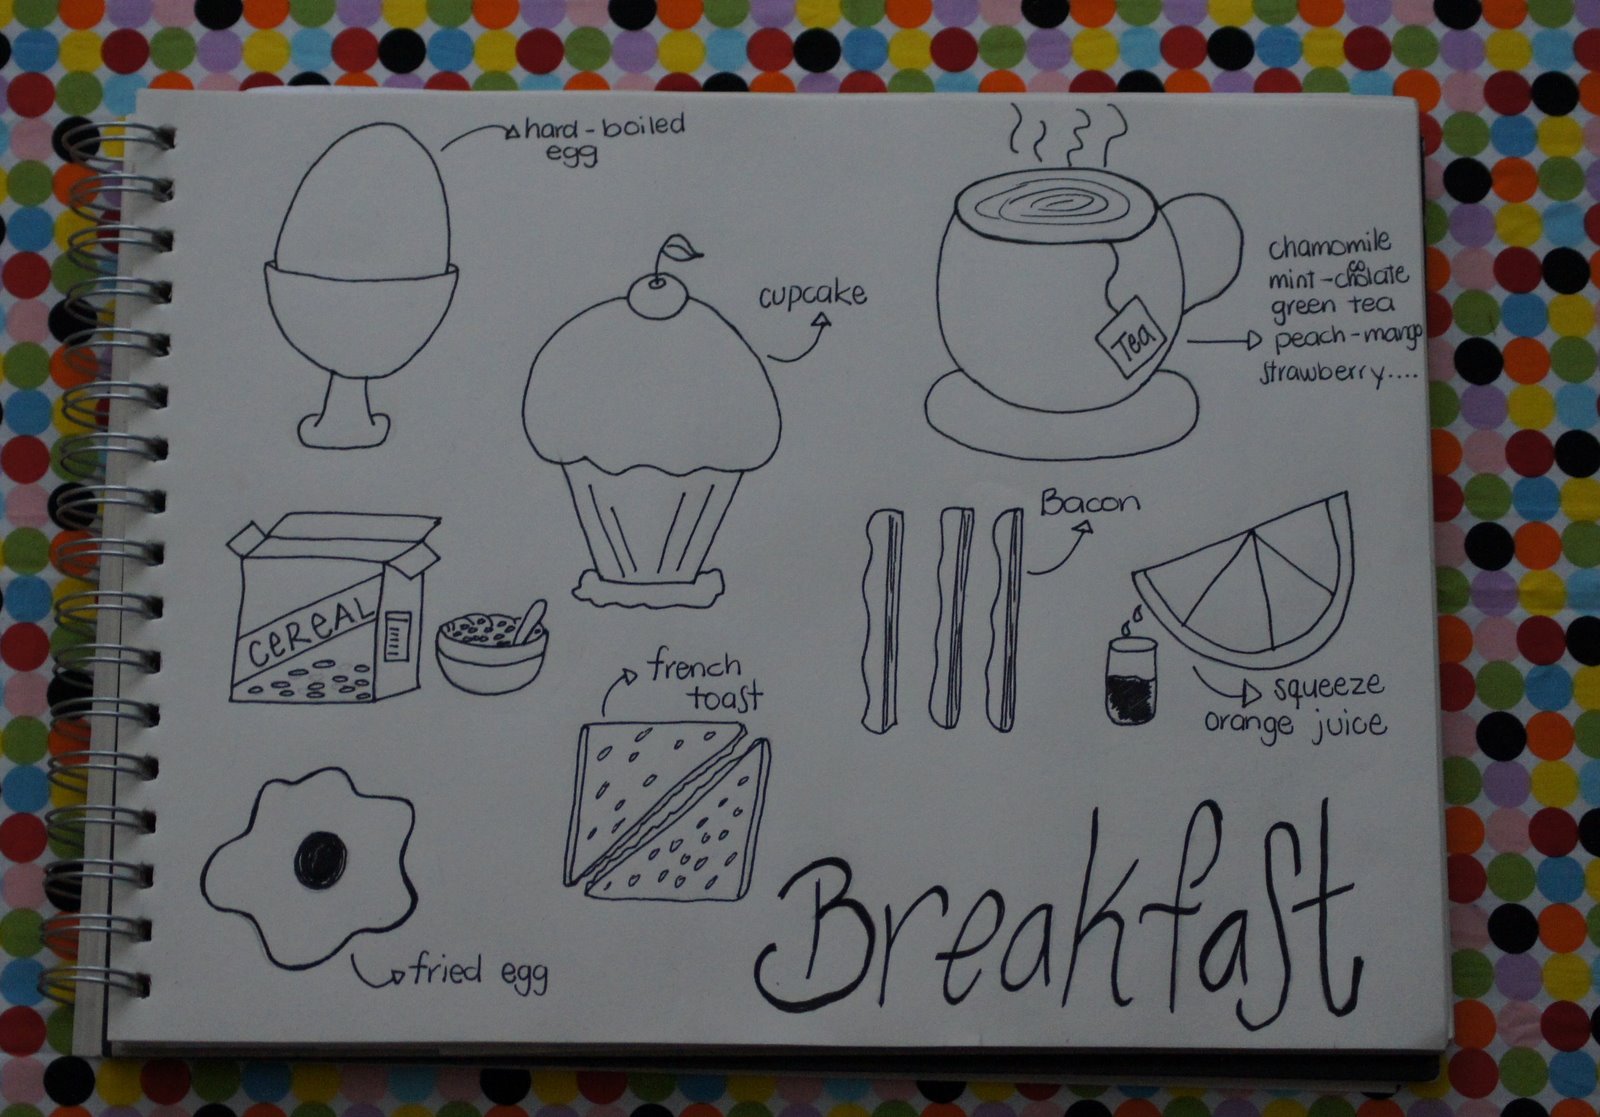 hard-boiled
egg
cupcake
chamomile
mint-chocolate
green tea
peach-mango
strawberry....
Tea
Bacon
CEREAL
french
toast
squeeze
orange juice
fried egg
Breakfast